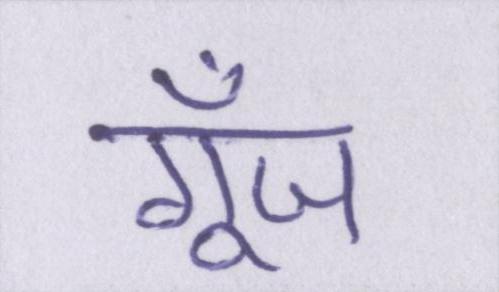 गूँज